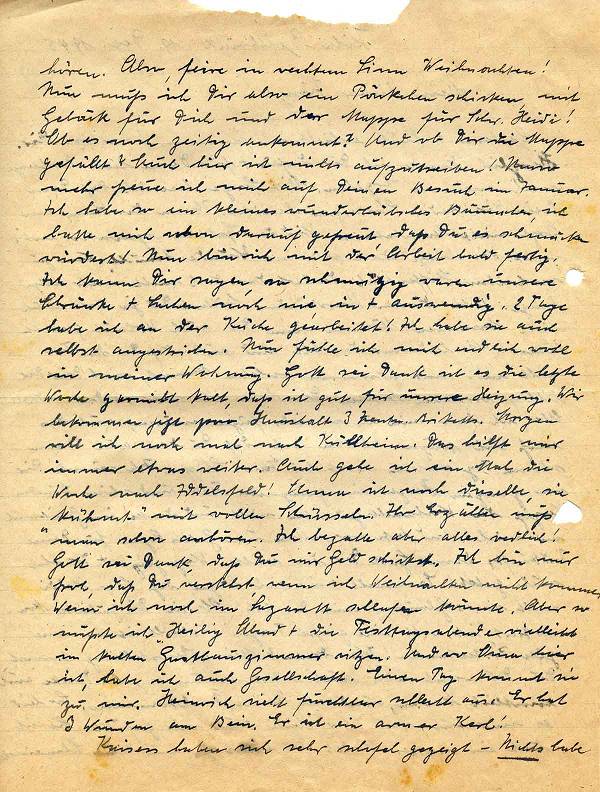 hören. Also, feire in rechtem Sinn Weihnachten!
Nun muß ich Dir also ein Päckchen schicken, mit
Gebäck für Dich und der Mappe für Schw. Heidi!
Ob es noch zeitig ankommt? Und ob Dir die Mappe
gefällt? Auch hier ist nichts aufzutreiben!
mehr freue ich mich auf Deinen Besuch im Januar.
Ich habe so ein kleines wunderhübsches Bäumchen, ich
hatte mich schon darauf gefreut, daß Du es schmücken
würdest! Nun bin ich mit der Arbeit bald fertig.
Ich kann Dir sagen so schmutzig waren unsere
Schränke + Sachen noch nie in + auswendig. 2 Tage
habe ich an der Küche gearbeitet! Ich habe sie auch
selbst angestrichen. Nun fühle ich mich endlich wohl
in meiner Wohnung. Gott sei Dank ist es die letzte
Woche gar nicht kalt, daß ist gut für unsere Heizung. Wir
bekommen jetzt pro Haushalt 3 Zentn. Briketts. Morgen
will ich noch mal nach Küllheim. Das hilft mir
immer etwas weiter. Auch gehe ich ein Mal die
Woche nach Iddelsfeld! Unna ist noch dieselbe, sie
mit vollen Schüsseln. Ihr Erzählen muß
man schon anhören. Ich bezahle aber alles redlich!
Gott sei Dank, daß Du mir Geld schickst. Ich bin nur
froh, daß Du verstehst wenn ich Weihnachten nicht komme,
Wenn ich noch im Lazarett schlafen könnte. Aber so
müßte ich Heilig Abend + die Festtagsabende vielleicht
im kalten Gasthauszimmer sitzen. Und wo Unna hier
ist, habe ich auch Gesellschaft. Einen Tag kommt sie
zu mir. Heinrich sieht furchtbar schlecht aus. Er hat
3 Wunden am Bein. Er ist ein armer Kerl!
Kaisers haben sich sehr schofel gezeigt – Nichts habe